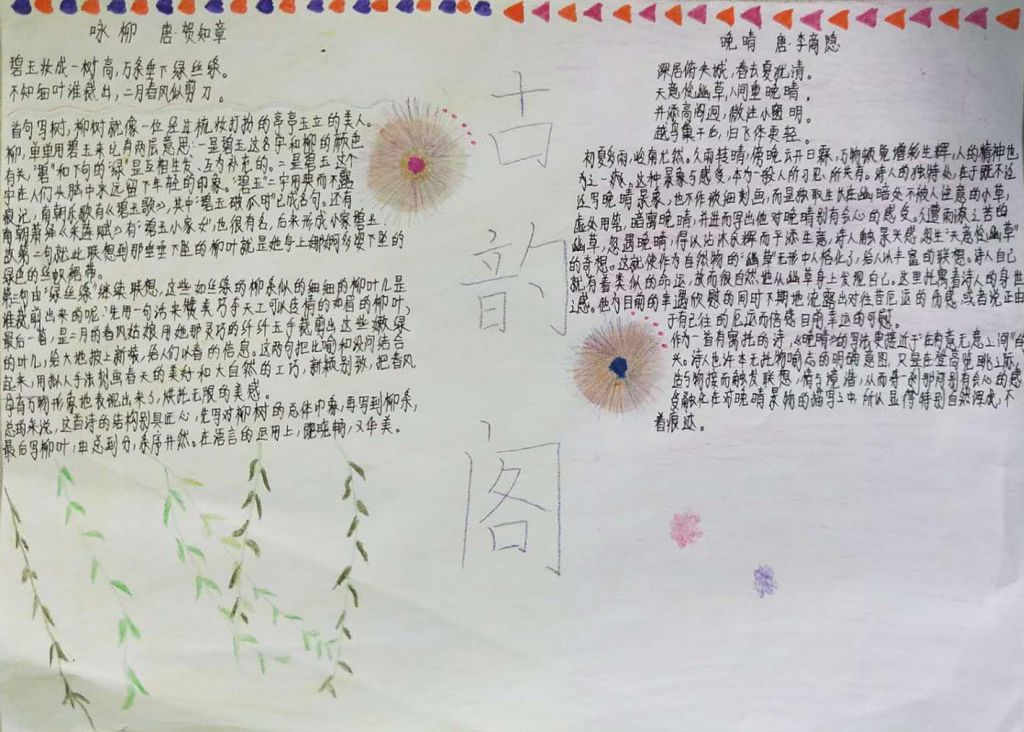 咏柳 唐·贺知章
碧玉妆成一树高,万条垂下绿丝绦。
不知细叶谁裁出,二月春风似剪刀。
首句写树,柳树就像一位经过梳妆打扮的亭亭玉立的美人。
柳,单单用碧玉来比有两层意思:一是碧玉这名字和柳的颜色
有关,"碧"和下句的"绿"是互相生发、互为补充的。二是碧玉这个
字在人们头脑中永远留下年轻的印象。"碧玉"二字用典而不露
痕记,南朝乐歌有《碧玉歌》,其中"碧玉破瓜时"已成名句。还有
南朝萧绎《采莲赋》有"碧玉小家女",也很有名,后来形成小家碧玉
故第二句就此联想到那垂垂下坠的柳叶就是她身上婀娜多姿下坠的
绿色的丝织裙带。
第三句由"绿丝绦"继续联想,这些如丝绦的柳条似的细细的柳叶儿是
谁裁剪出来的呢?先用一句话来赞美巧夺天工可以传情的如眉的柳叶,
最后一答,是二月的春风姑娘用她那灵巧的纤纤玉手裁剪出这些嫩绿
的叶儿,给大地披上新装,给人们以春的信息。这两句把比喻和设问结合
起来,用拟人手法刻画春天的美好和大自然的工巧,新颖别致,把春风
孕育万物形象地表现出来了,烘托无限的美感
总的来说,这首诗的结构别具匠心,先写对柳树的总体印象,再写到柳条,
最后写柳叶,由总到分,条序井然。在语言的运用上,既晓畅,又华美。
古
韵
阁
晚晴 唐·李商隐
深居俯夹城,春去夏犹清。
天意怜幽草,人间重晚晴。
并添高阁迥,微注小窗明。
越鸟巢干后,归飞体更轻。
初夏多雨,岭南尤然。久雨转晴,傍晚云开日霁,万物顿觉增彩生辉,人的精神也
为之一爽。这种景象与感受,本为一般人所习见、所共有。诗人的独特处,在于既不泛
泛写晚晴景象,也不作琐细刻画,而是独取生长在幽暗处不被人注意的小草,
虚处用笔,暗寓晚晴,并进而写出他对晚晴别有会心的感受。久遭雨潦之苦的
幽草,忽遇晚晴,得以沾沐余辉而平添生意,诗人触景兴感,忽生"天意怜幽草"
的奇想。这就使作为自然物的"幽草"无形中人格化了,给人以丰富的联想。诗人自己
就有着类似的命运,故而很自然地从幽草身上发现自己。这里托寓着诗人的身世
之感。他为目前的幸遇欣慰的同时不期地流露出对往昔厄运的伤感,或者说正由
于有已往的厄运而倍感目前幸运的可慰。
作为一首有寓托的诗,《晚晴》的写法更接近于"在有意无意之间"的
兴。诗人也许本无托物喻志的明确意图,又是在登高览眺之际,
适与物接而触发联想,情与境谐,从而将一刹那间别有会心的感
受融化在对晚晴景物的描写之中,所以显得特别自然浑成,不
着痕迹。